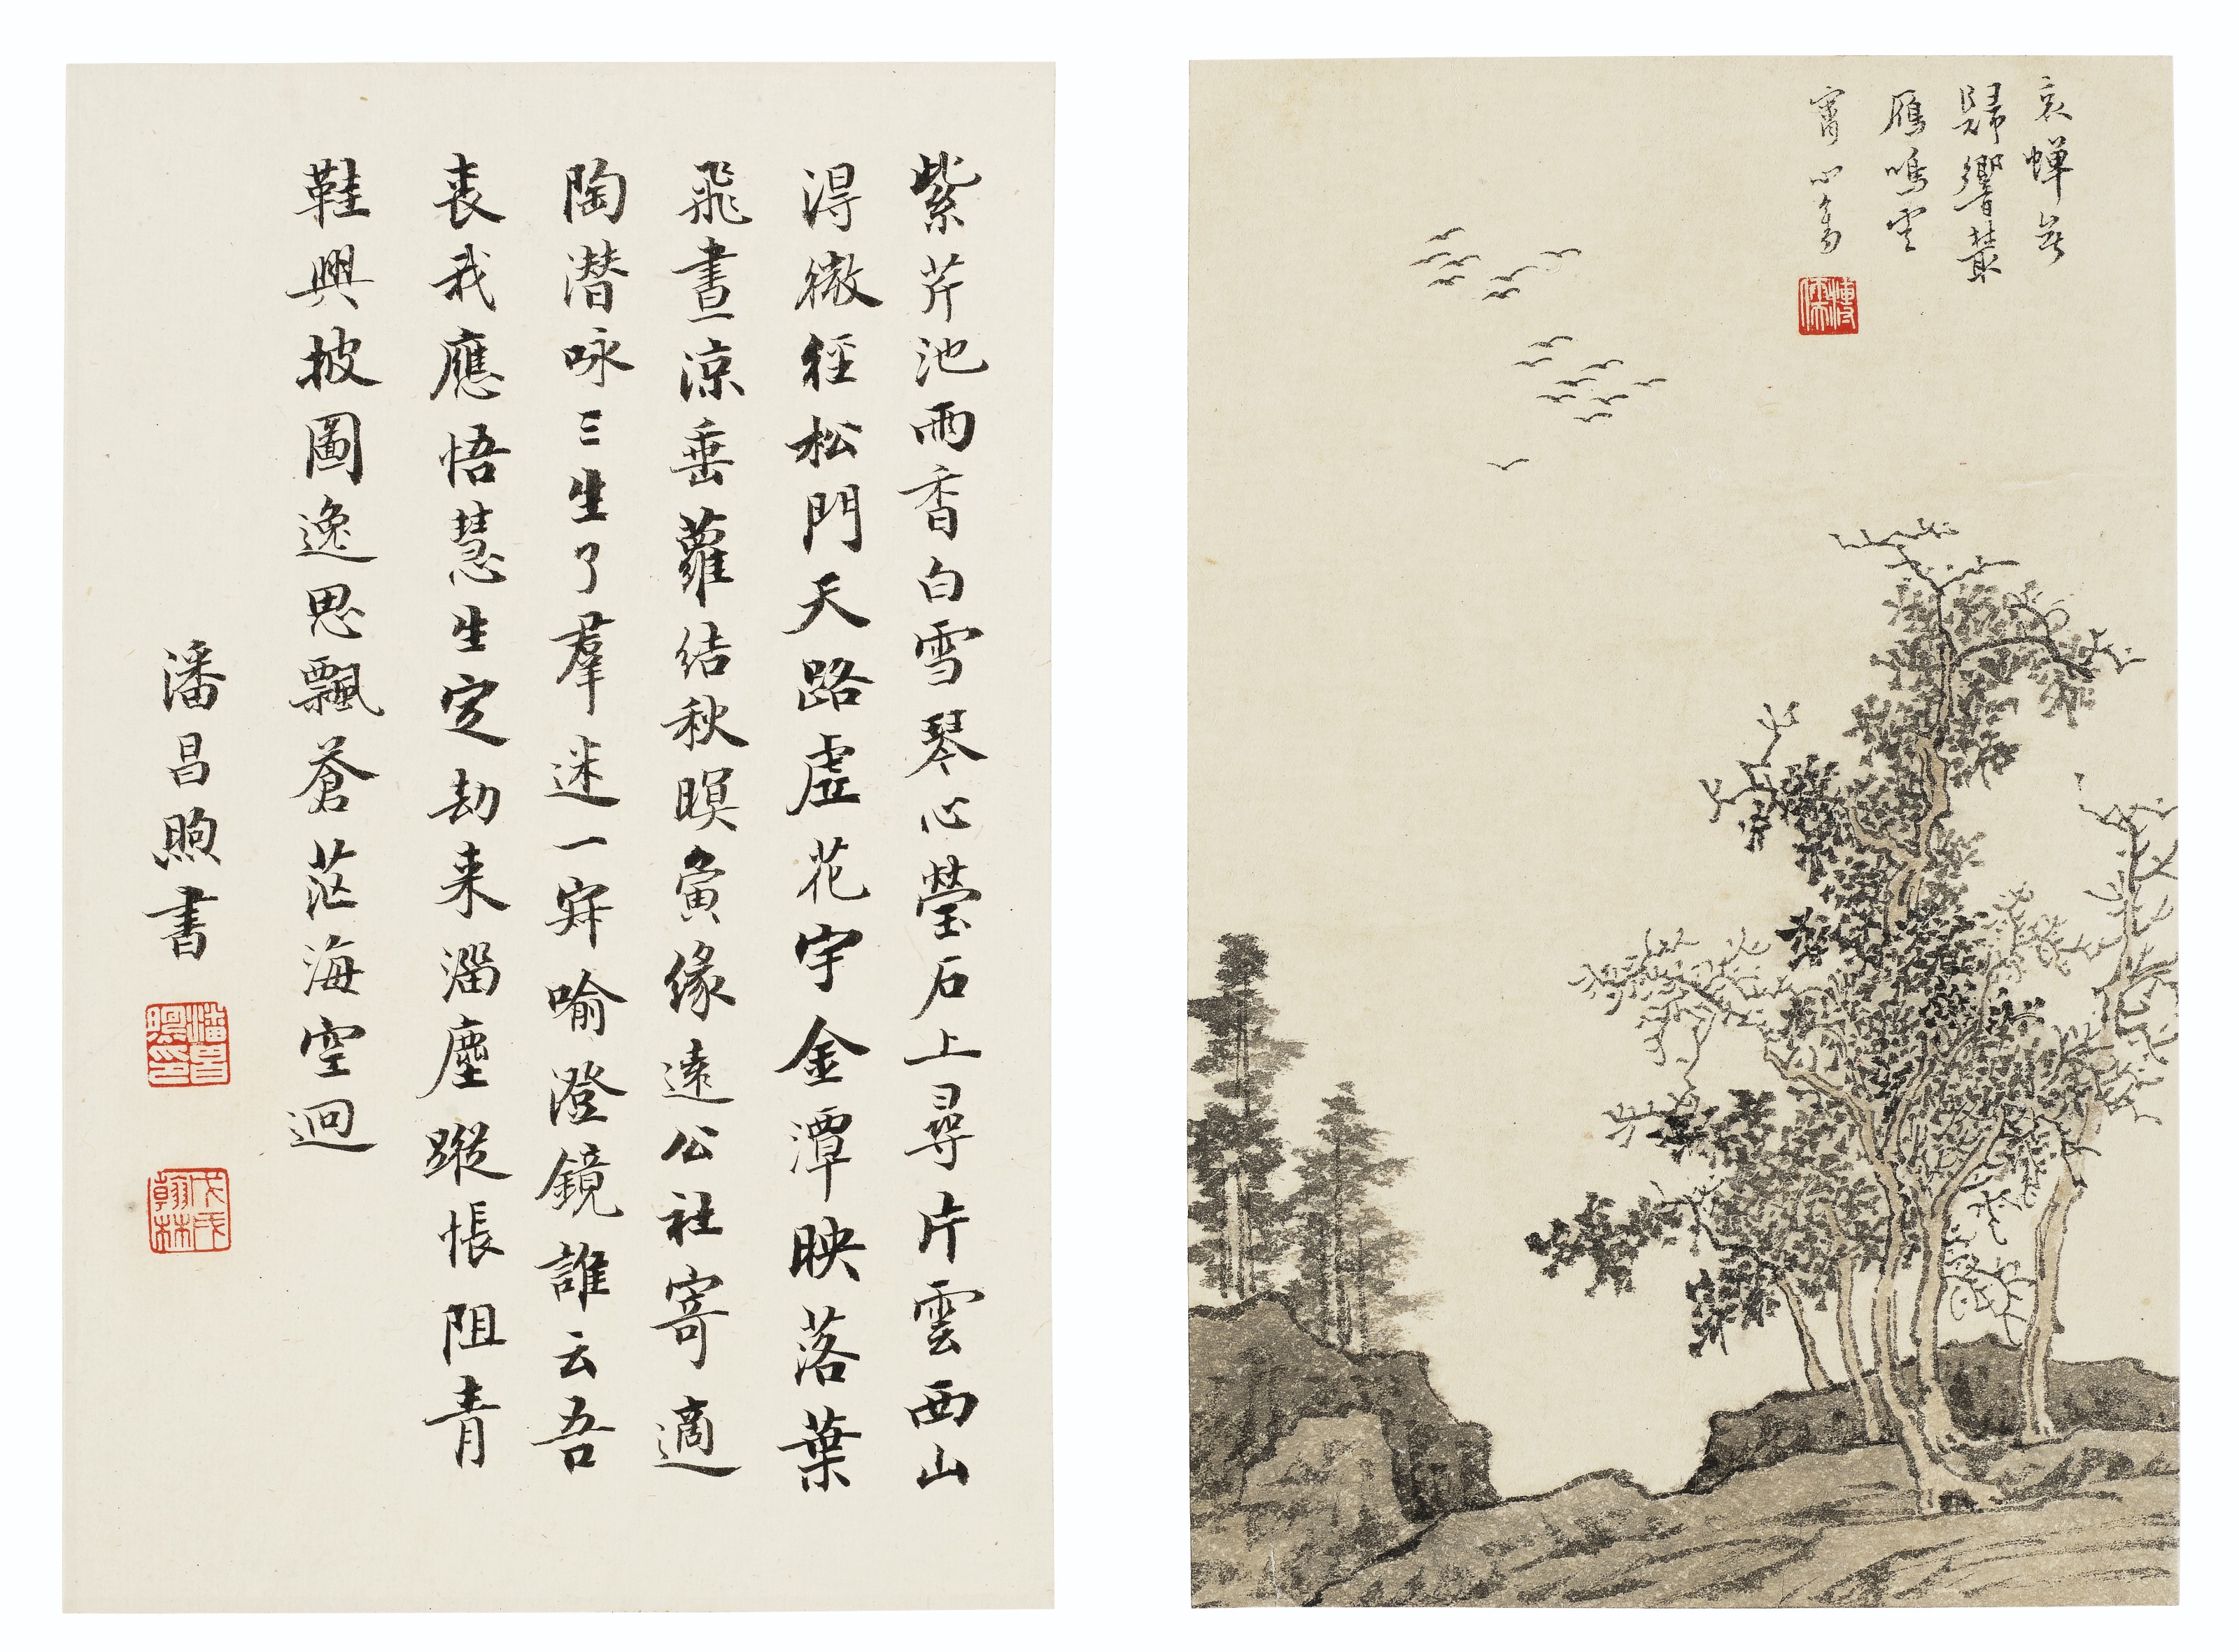 哀蟬無
歸響叢
雁鳴雲
霄 心畬
溥儒
紫芹池雨香白雪琴心瑩石上尋片雲西山
淂微徑松門天路虛花宇金潭映落葉
飛晝涼垂蘿結秋暝夤緣遠公社寄適
陶潛咏三生了羣迷一喻澄鏡誰云吾
喪我應悟慧生定劫来淄塵蹤悵阻青
鞋興披圖逸思飄蒼茫海空迥
潘昌煦書
潘昌煦印
戊戌翰林